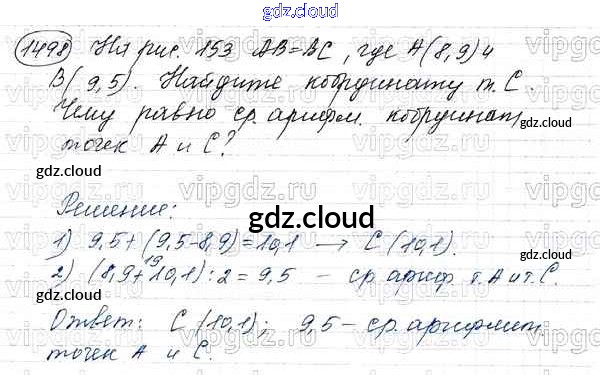 gdz.cloud
1498 На рис. 153 AB=BC, где A(8,9) и
B(9,5). Найдите координату т. С.
Чему равно ср. арифм. координат
точек А и С?
gdz.cloud
gdz.cloud
Решение:
gdz.cloud
1) 9,5+(9,5-8,9)=10,1 → С(10,1).
2) (8,9+10,1):2=9,5 – ср. ариф. т. А и т. С.
19
gdz.cloud
Ответ: С(10,1); 9,5 – ср. арифмет.
точек А и С.
gdz.cloud
gdz.cloud